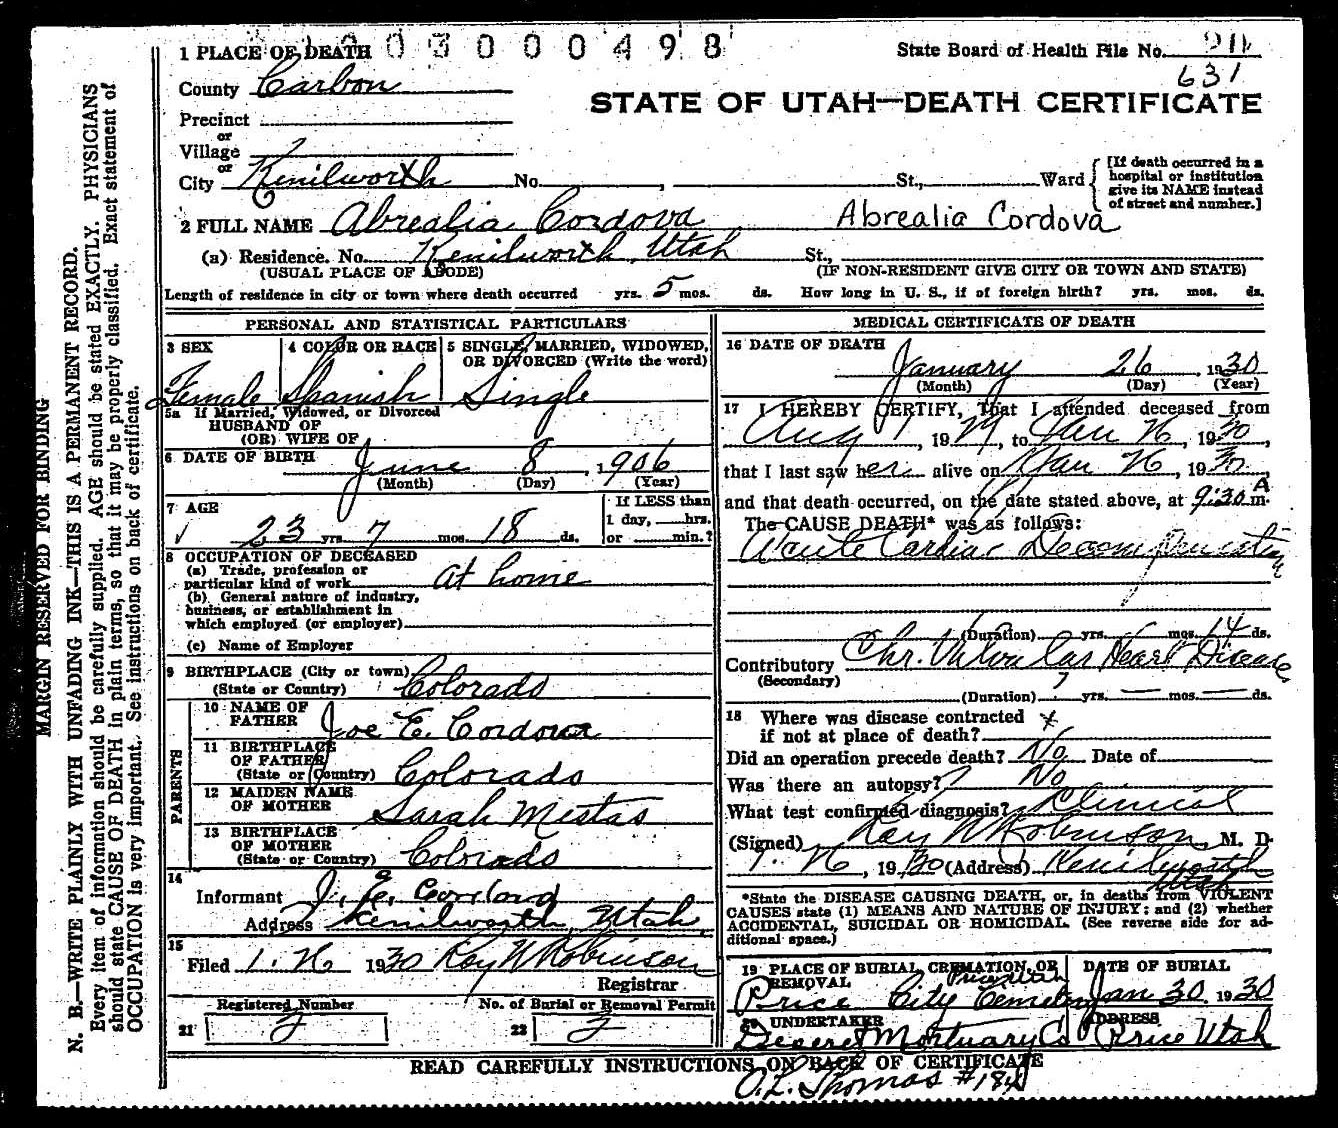 1 PLACE OF DEATH 03000498 State Board of Health File No.
County Carbon 631
STATE OF UTAH—DEATH CERTIFICATE
Precinct
or
Village
or
City Kenilworth No. , St., Ward
[If death occurred in a hospital or institution give its NAME instead of street and number.]
2 FULL NAME Abrealia Cordova Abrealia Cordova
(a) Residence. No. Kenilworth, Utah St.,
(USUAL PLACE OF ABODE) (IF NON-RESIDENT GIVE CITY OR TOWN AND STATE)
Length of residence in city or town where death occurred yrs. 5 mos. ds. How long in U. S., if of foreign birth? yrs. mos. ds.
PERSONAL AND STATISTICAL PARTICULARS
3 SEX 4 COLOR OR RACE 5 SINGLE, MARRIED, WIDOWED,
OR DIVORCED (Write the word)
Female Spanish Single
5a If Married, Widowed, or Divorced
HUSBAND OF
(OR) WIFE OF
6 DATE OF BIRTH June 8, 1906
(Month) (Day) (Year)
7 AGE If LESS than
1 day, hrs.
23 yrs. 7 mos. 18 ds. or min.?
8 OCCUPATION OF DECEASED
(a) Trade, profession or
particular kind of work At home
(b) General nature of industry,
business, or establishment in
which employed (or employer)
(c) Name of Employer
9 BIRTHPLACE (City or town)
(State or Country) Colorado
PARENTS
10 NAME OF
FATHER Joe E. Cordova
11 BIRTHPLACE
OF FATHER
(State or Country) Colorado
12 MAIDEN NAME
OF MOTHER Sarah Mestas
13 BIRTHPLACE
OF MOTHER
(State or Country) Colorado
14
Informant J. E.
Address Kenilworth, Utah
15
Filed 1. 26 1930 Roy W Robinson
Registrar
Registered Number No. of Burial or Removal Permit
21 2 22 2
MEDICAL CERTIFICATE OF DEATH
16 DATE OF DEATH
January 26, 1930
(Month) (Day) (Year)
17 I HEREBY CERTIFY, That I attended deceased from
Aug 1, 1929, to Jan 26, 1930,
that I last saw her alive on Jan 26, 1930,
and that death occurred, on the date stated above, at 9:30 A m.
The CAUSE DEATH* was as follows:
Acute Cardiac Decompensation
(Duration) yrs. mos. 14 ds.
Contributory Chr. Valvular Heart Disease
(Secondary)
(Duration) 7 yrs. — mos. — ds.
18 Where was disease contracted
if not at place of death?
Did an operation precede death? No Date of
Was there an autopsy? No
What test confirmed diagnosis? Clinical
(Signed) Roy W Robinson, M. D.
1. 26, 1930 (Address) Kenilworth
Utah
*State the DISEASE CAUSING DEATH, or, in deaths from VIOLENT
CAUSES state (1) MEANS AND NATURE OF INJURY; and (2) whether
ACCIDENTAL, SUICIDAL OR HOMICIDAL. (See reverse side for ad-
ditional space.)
19 PLACE OF BURIAL, CREMATION, OR REMOVAL DATE OF BURIAL
Price Utah
Price City Cemetery Jan 30, 1930
20 UNDERTAKER ADDRESS
Deseret Mortuary Co Price Utah
READ CAREFULLY INSTRUCTIONS ON BACK OF CERTIFICATE
O. L. Thomas #184
MARGIN RESERVED FOR BINDING
N. B.—WRITE PLAINLY WITH UNFADING INK—THIS IS A PERMANENT RECORD.
Every item of information should be carefully supplied. AGE should be stated EXACTLY. PHYSICIANS
should state CAUSE OF DEATH in plain terms, so that it may be properly classified. Exact statement of
OCCUPATION is very important. See instructions on back of certificate.